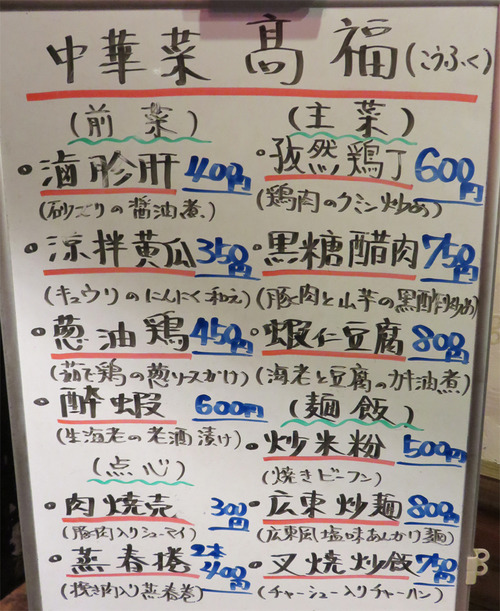 中華菜 高福(こうふく)
(前菜)
・滷胗肝 400円
(砂ズリの醤油煮)
・涼拌黄瓜 350円
(キュウリのにんにく和え)
・葱油鶏 450円
(茹で鶏の葱ソースかけ)
・酔蝦 600円
(生海老の老酒漬け)
(点心)
・肉焼売 300円
(豚肉入りシューマイ)
・蒸春捲 2本400円
(挽き肉入り蒸春巻)
(主菜)
・孜然鶏丁 600円
(鶏肉のクミン炒め)
・黒糖醋肉 750円
(豚肉と山芋の黒酢炒め)
・蝦仁豆腐 800円
(海老と豆腐のカキ油煮)
(麺飯)
・炒米粉 500円
(焼きビーフン)
・広東炒麺 800円
(広東風塩味あんかけ麺)
・叉焼炒飯 750円
(チャーシュー入りチャーハン)